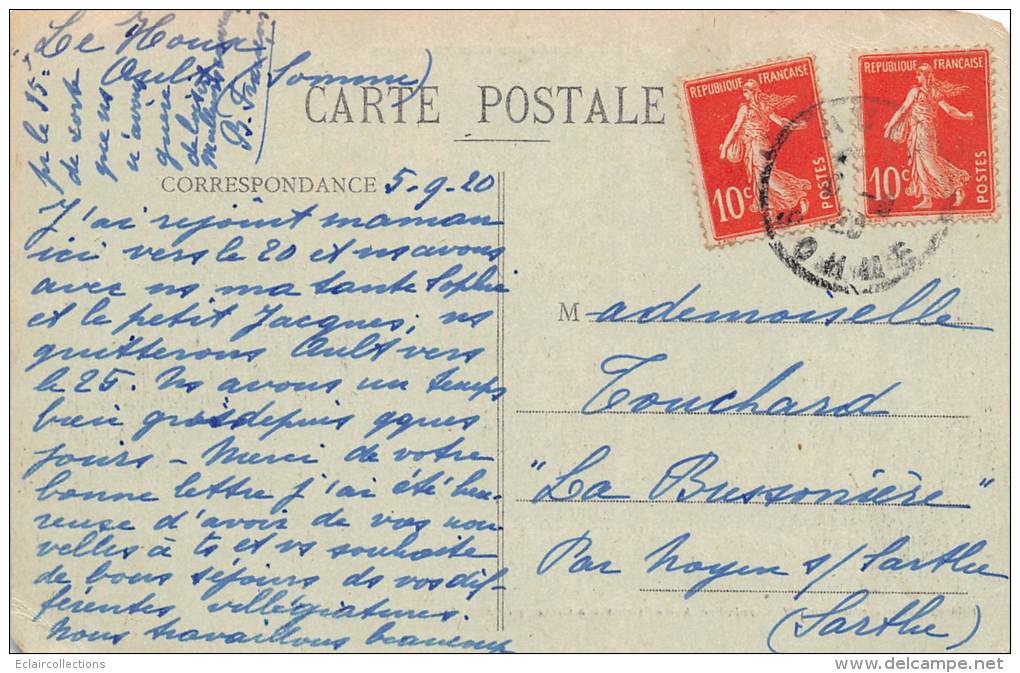 "Le Houx
Ault Somme)
CARTE POSTALE
CORRESPONDANCE 5-9-20
J'ai rejoint maman
ici vers le 20 et ns avons
avec ns ma tante Sophie
et le petit Jacques; ns
quitterons Ault vers
le 25. Ns avons un temps
bien gris depuis qques
jours - Merci de votre
bonne lettre j'ai été heu-
reuse d'avoir de vos nou-
velles à ts et vs souhaite
de bons séjours ds vos dif-
férentes villégiatures.
Nous travaillons beaucoup
pr le 15
de sorte
que ns
n'avons
guère
de loisirs
B.
REPUBLIQUE FRANÇAISE
10c
POSTES
REPUBLIQUE FRANÇAISE
10c
POSTES
SOMME
Mademoiselle
Touchard
"La Bussonière"
Par Noyen s/Sarthe
(Sarthe)
Eclaircollections
delcampe.net